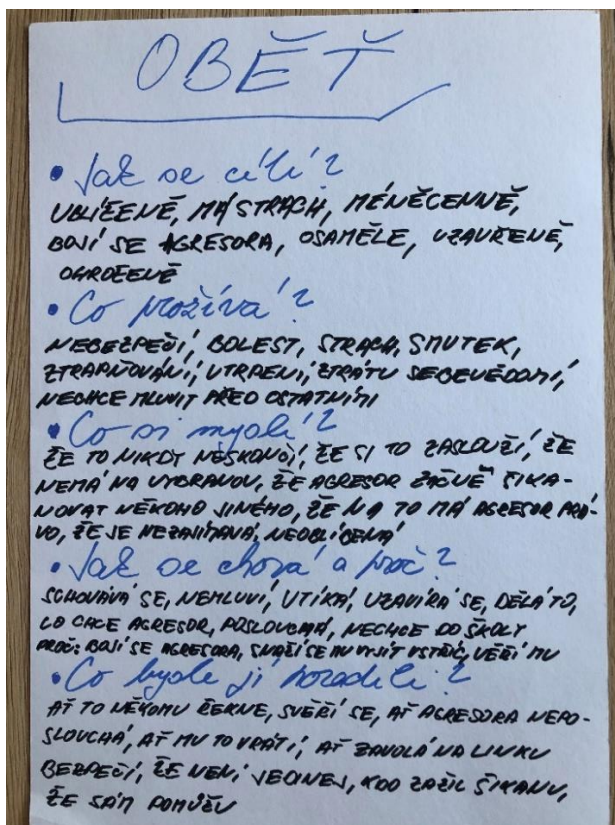 OBĚŤ
• Jak se cítí?
UBLÍŽENĚ, MÁ STRACH, MÉNĚCENNĚ,
BOJÍ SE AGRESORA, OSAMĚLE, UZAVŘENĚ,
OHROŽENĚ
• Co prožívá?
NEBEZPEČÍ, BOLEST, STRACH, SMUTEK,
ZTRAPŇOVÁNÍ, UTRPENÍ, ZTRÁTU SEBEVĚDOMÍ,
NECHCE MLUVIT PŘED OSTATNÍMI
• Co si myslí?
ŽE TO NIKDY NESKONČÍ, ŽE SI TO ZASLOUŽÍ, ŽE
NEMÁ NA VYBRANOU, ŽE AGRESOR ZAČNE ŠIKA-
NOVAT NĚKOHO JINÉHO, ŽE NA TO MÁ AGRESOR PRÁ-
VO, ŽE JE NEZAJÍMAVÁ, NEOBLÍBENÁ
• Jak se chová a proč?
SCHOVÁVÁ SE, NEMLUVÍ, UTÍKÁ, UZAVÍRÁ SE, DĚLÁ TO,
CO CHCE AGRESOR, POSLOUCHÁ, NECHCE DO ŠKOLY
PROČ: BOJÍ SE AGRESORA, SNAŽÍ SE MU VYJÍT VSTŘÍC, VĚŘÍ MU
• Co byste jí poradili?
AŤ TO NĚKOMU ŘEKNE, SVĚŘÍ SE, AŤ AGRESORA NEPO-
SLOUCHÁ, AŤ MU TO VRÁTÍ, AŤ ZAVOLÁ NA LINKU
BEZPEČÍ, ŽE NENÍ JEDINEJ, KDO ZAŽIL ŠIKANU,
ŽE SÁM POMŮŽU